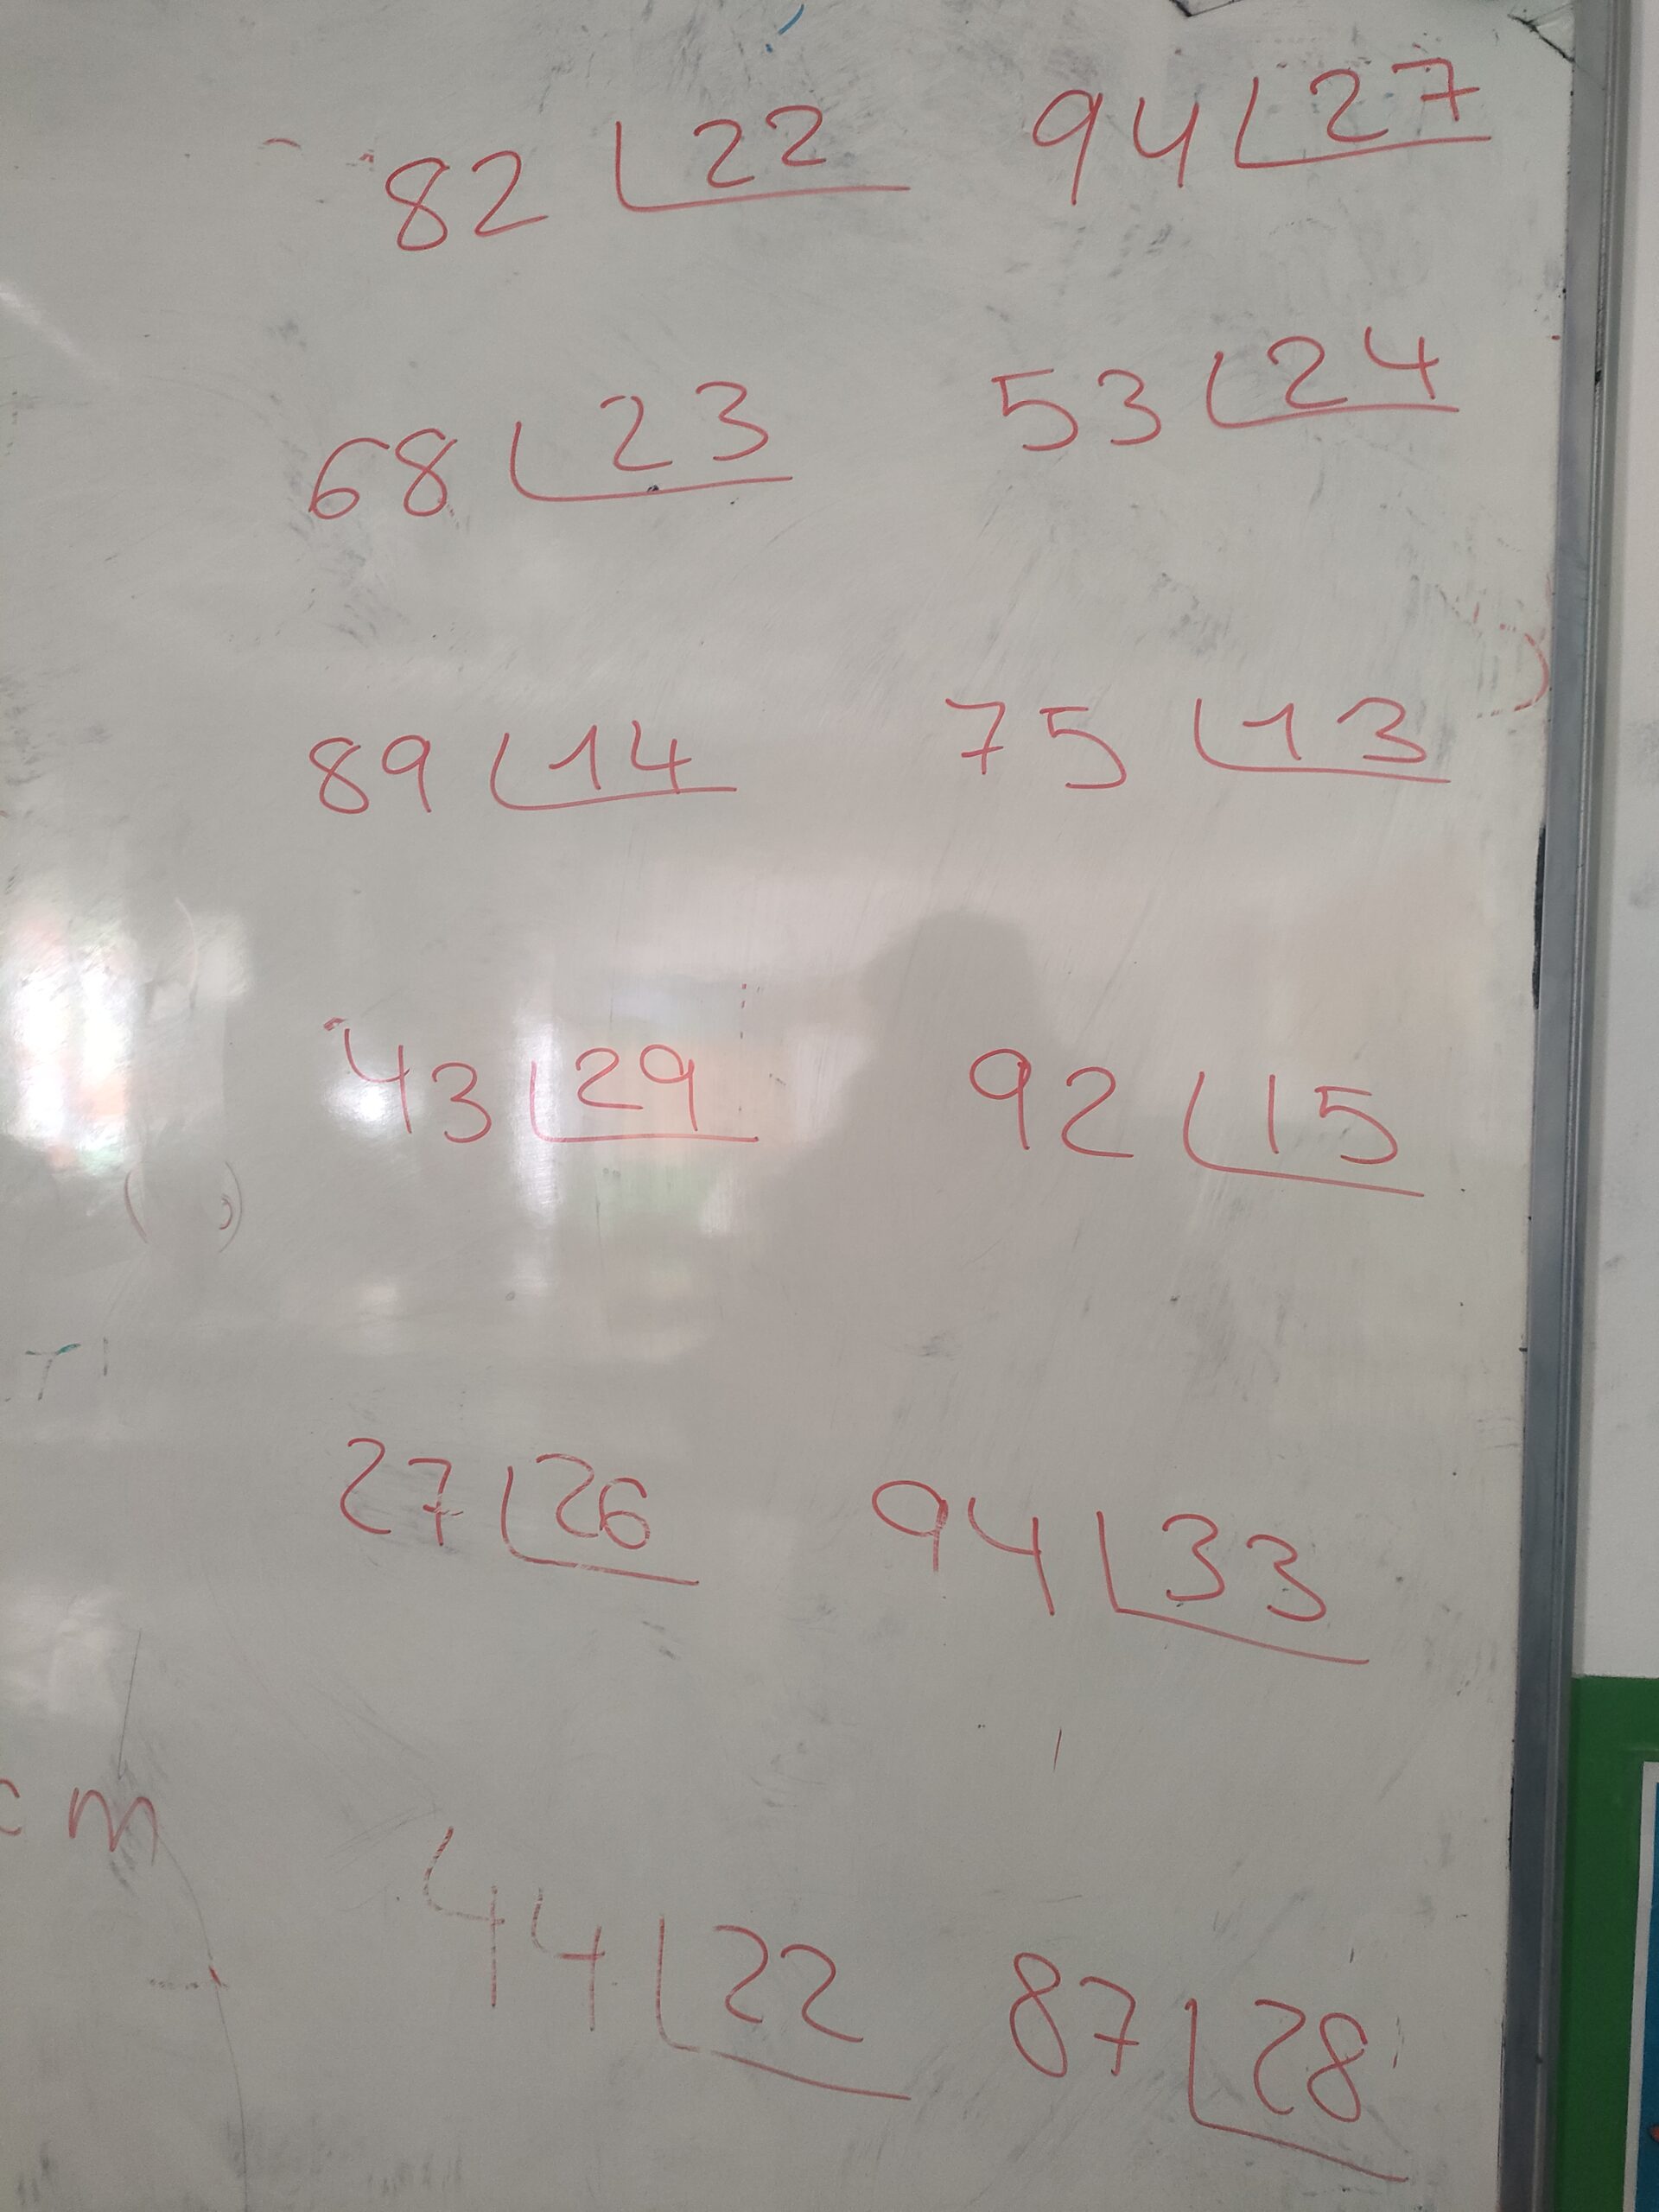 82 22 94 27
68 23 53 24
89 14 75 13
43 29 92 15
27 26 94 33
m
44 22 87 28